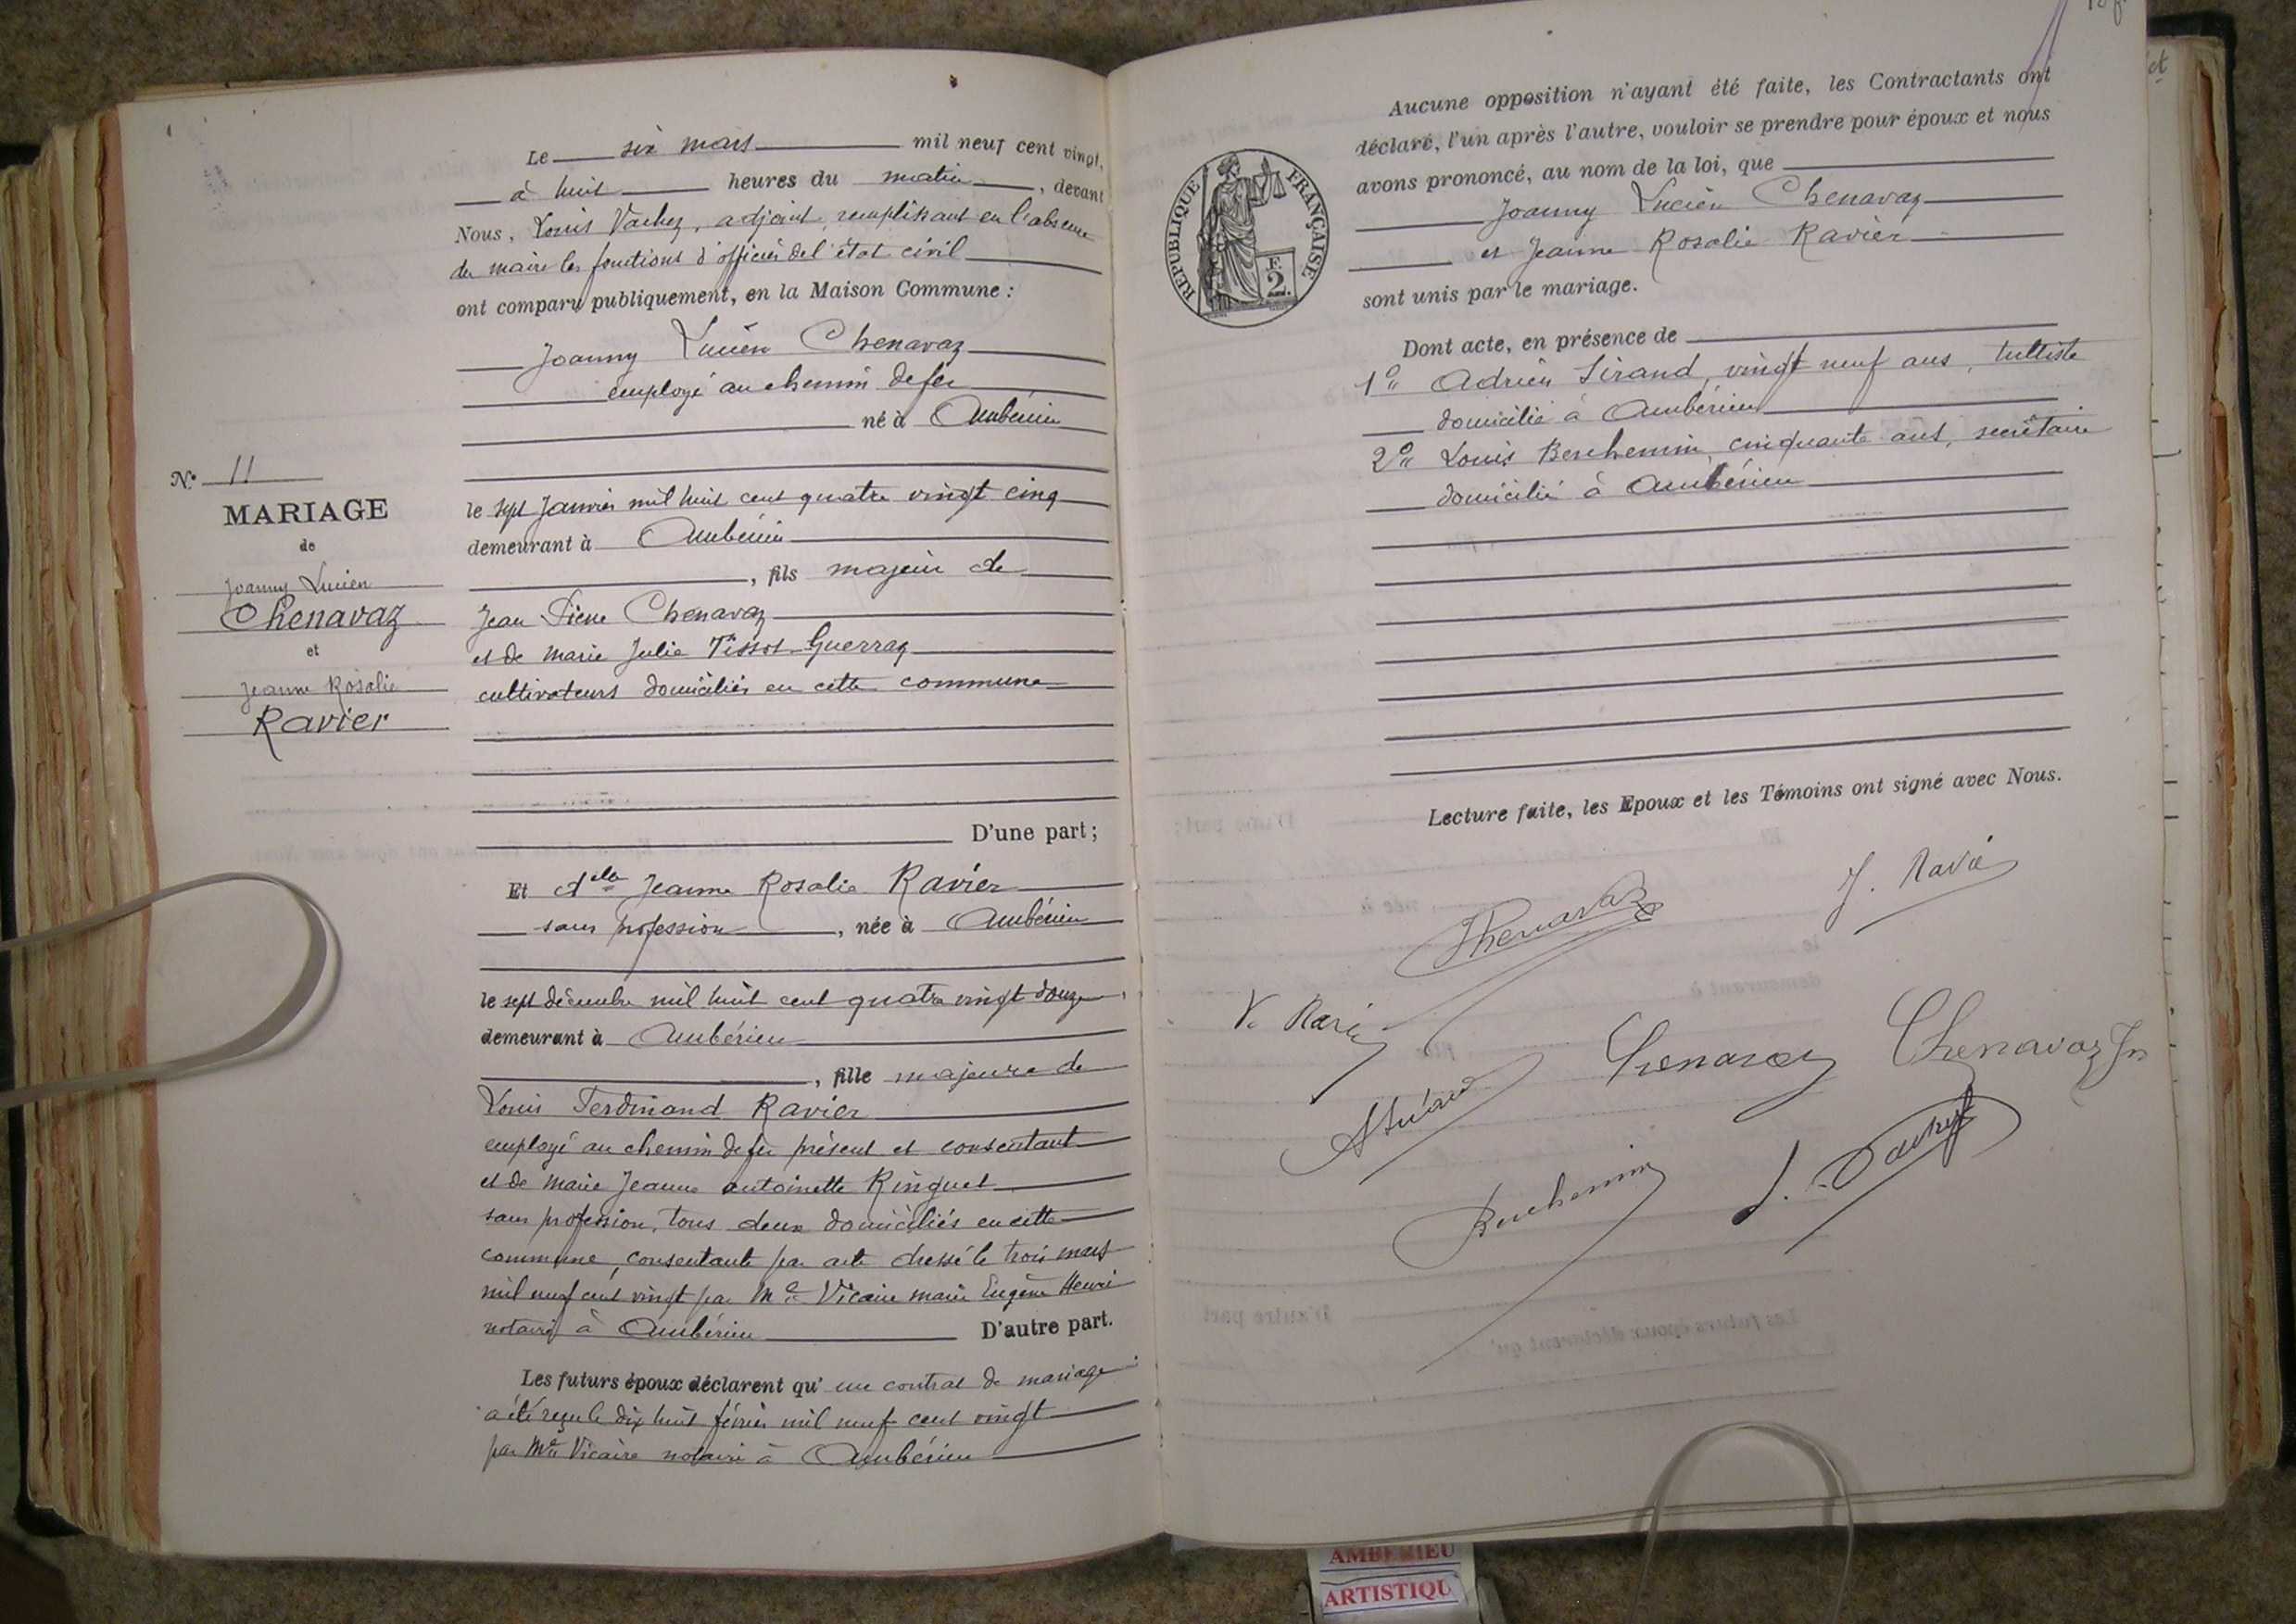 Le six mars mil neuf cent vingt,
à huit heures du matin, devant
Nous, Louis Vachez, adjoint, remplissant en l'absence
du maire les fonctions d'officier de l'état civil
ont comparu publiquement, en la Maison Commune :
Joanny Lucien Chenavaz
employé au chemin de fer
né à Ambérieu
le sept Janvier mil huit cent quatre vingt cinq
demeurant à Ambérieu
, fils majeur de
Jean Pierre Chenavaz
et de Marie Julie Tissot-Guerraz
cultivateurs domiciliés en cette commune
D'une part ;
N° 11
MARIAGE
de
Joanny Lucien
Chenavaz
et
Jeanne Rosalie
Ravier
Et delle Jeanne Rosalie Ravier
sans profession, née à Ambérieu
le sept décembre mil huit cent quatre vingt douze,
demeurant à Ambérieu
, fille majeure de
Louis Ferdinand Ravier
employé au chemin de fer présent et consentant
et de Marie Jeanne Antoinette Ringuet
sans profession, tous deux domiciliés en cette
commune, consentante par acte dressé le trois mars
mil neuf cent vingt par Me Vicaire Marie Eugène Henri
notaire à Ambérieu D'autre part.
Les futurs époux déclarent qu'un contrat de mariage
a été reçu le dix huit février mil neuf cent vingt
par Me Vicaire notaire à Ambérieu
Aucune opposition n'ayant été faite, les Contractants ont
déclaré, l'un après l'autre, vouloir se prendre pour époux et nous
avons prononcé, au nom de la loi, que
Joanny Lucien Chenavaz
et Jeanne Rosalie Ravier
sont unis par le mariage.
REPUBLIQUE FRANÇAISE
F.
2.
Dont acte, en présence de
1° Adrien Sirand, vingt neuf ans, tulliste
domicilié à Ambérieu
2° Louis Berchemin, cinquante ans, secrétaire
domicilié à Ambérieu
Lecture faite, les Epoux et les Témoins ont signé avec Nous.
Chenavaz
J. Ravié
V. Ravié
Chenavaz
Chenavaz Jn
A Sirand
Berchemin
L. Vachez
et
AMBERIEU
ARTISTIQU